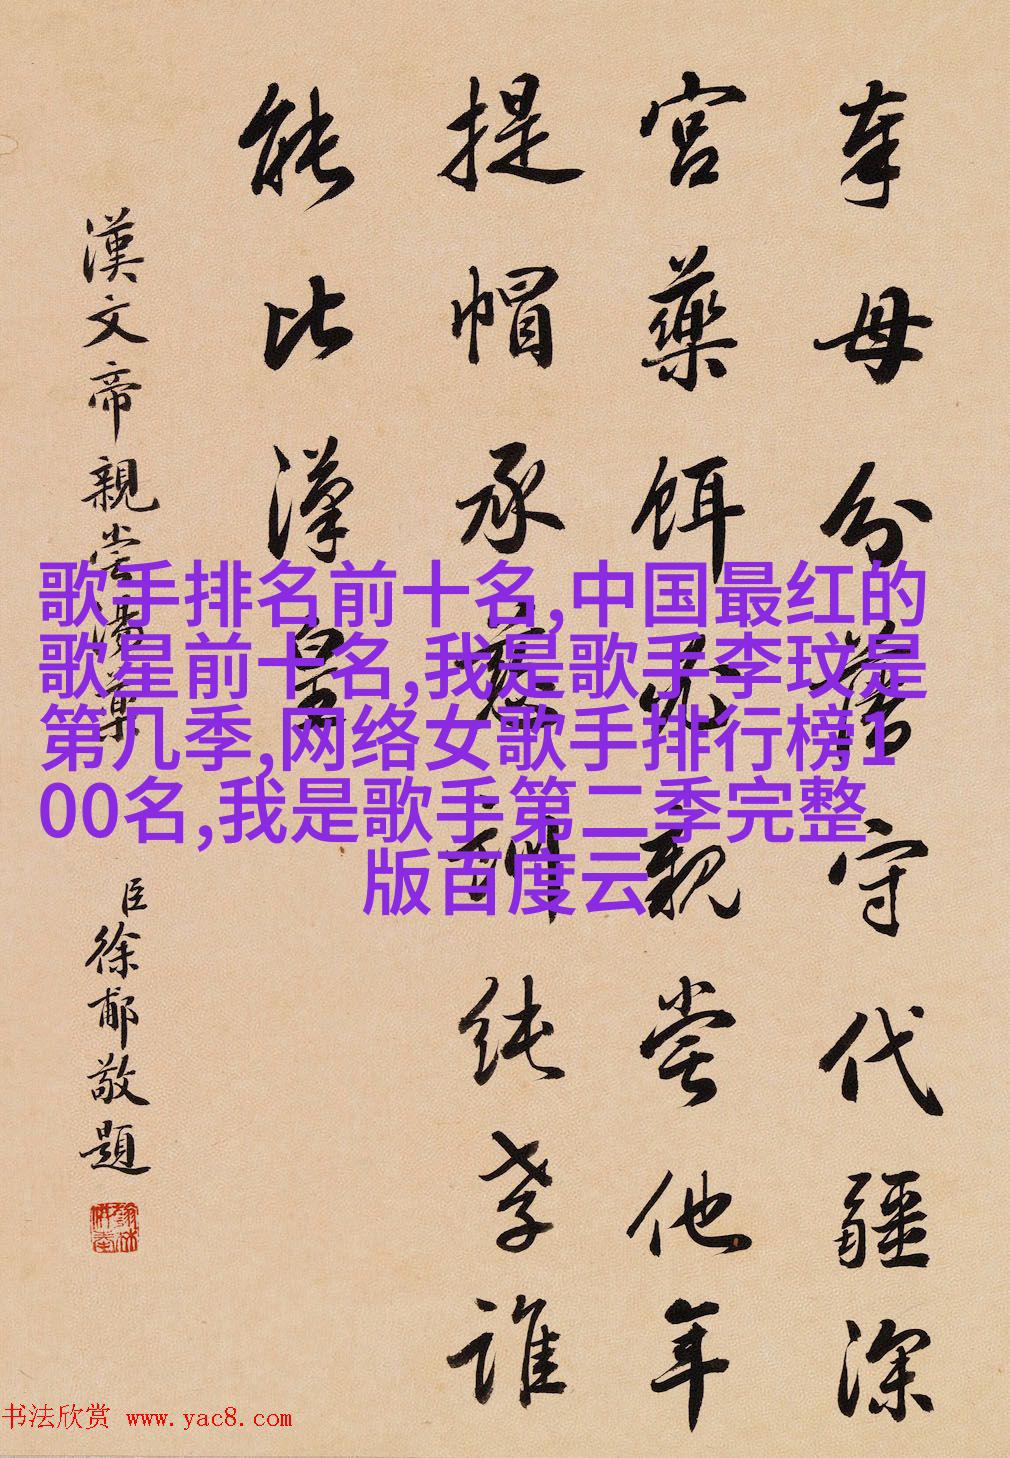 奉母分藩守代疆深
宮藥餌必親嘗他年
提帽承慈訓純孝誰
能比漢皇
漢文帝親嘗湯藥
臣徐郙敬題
歌手排名前十名,中国最红的
歌星前十名,我是歌手李玟是
第几季,网络女歌手排行榜1
00名,我是歌手第二季完整
版百度云
书法欣赏 www.yac8.com